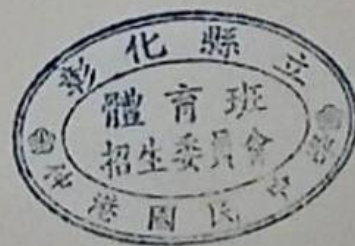 彰化縣立
體育班
招生委員會
伸港國民中學